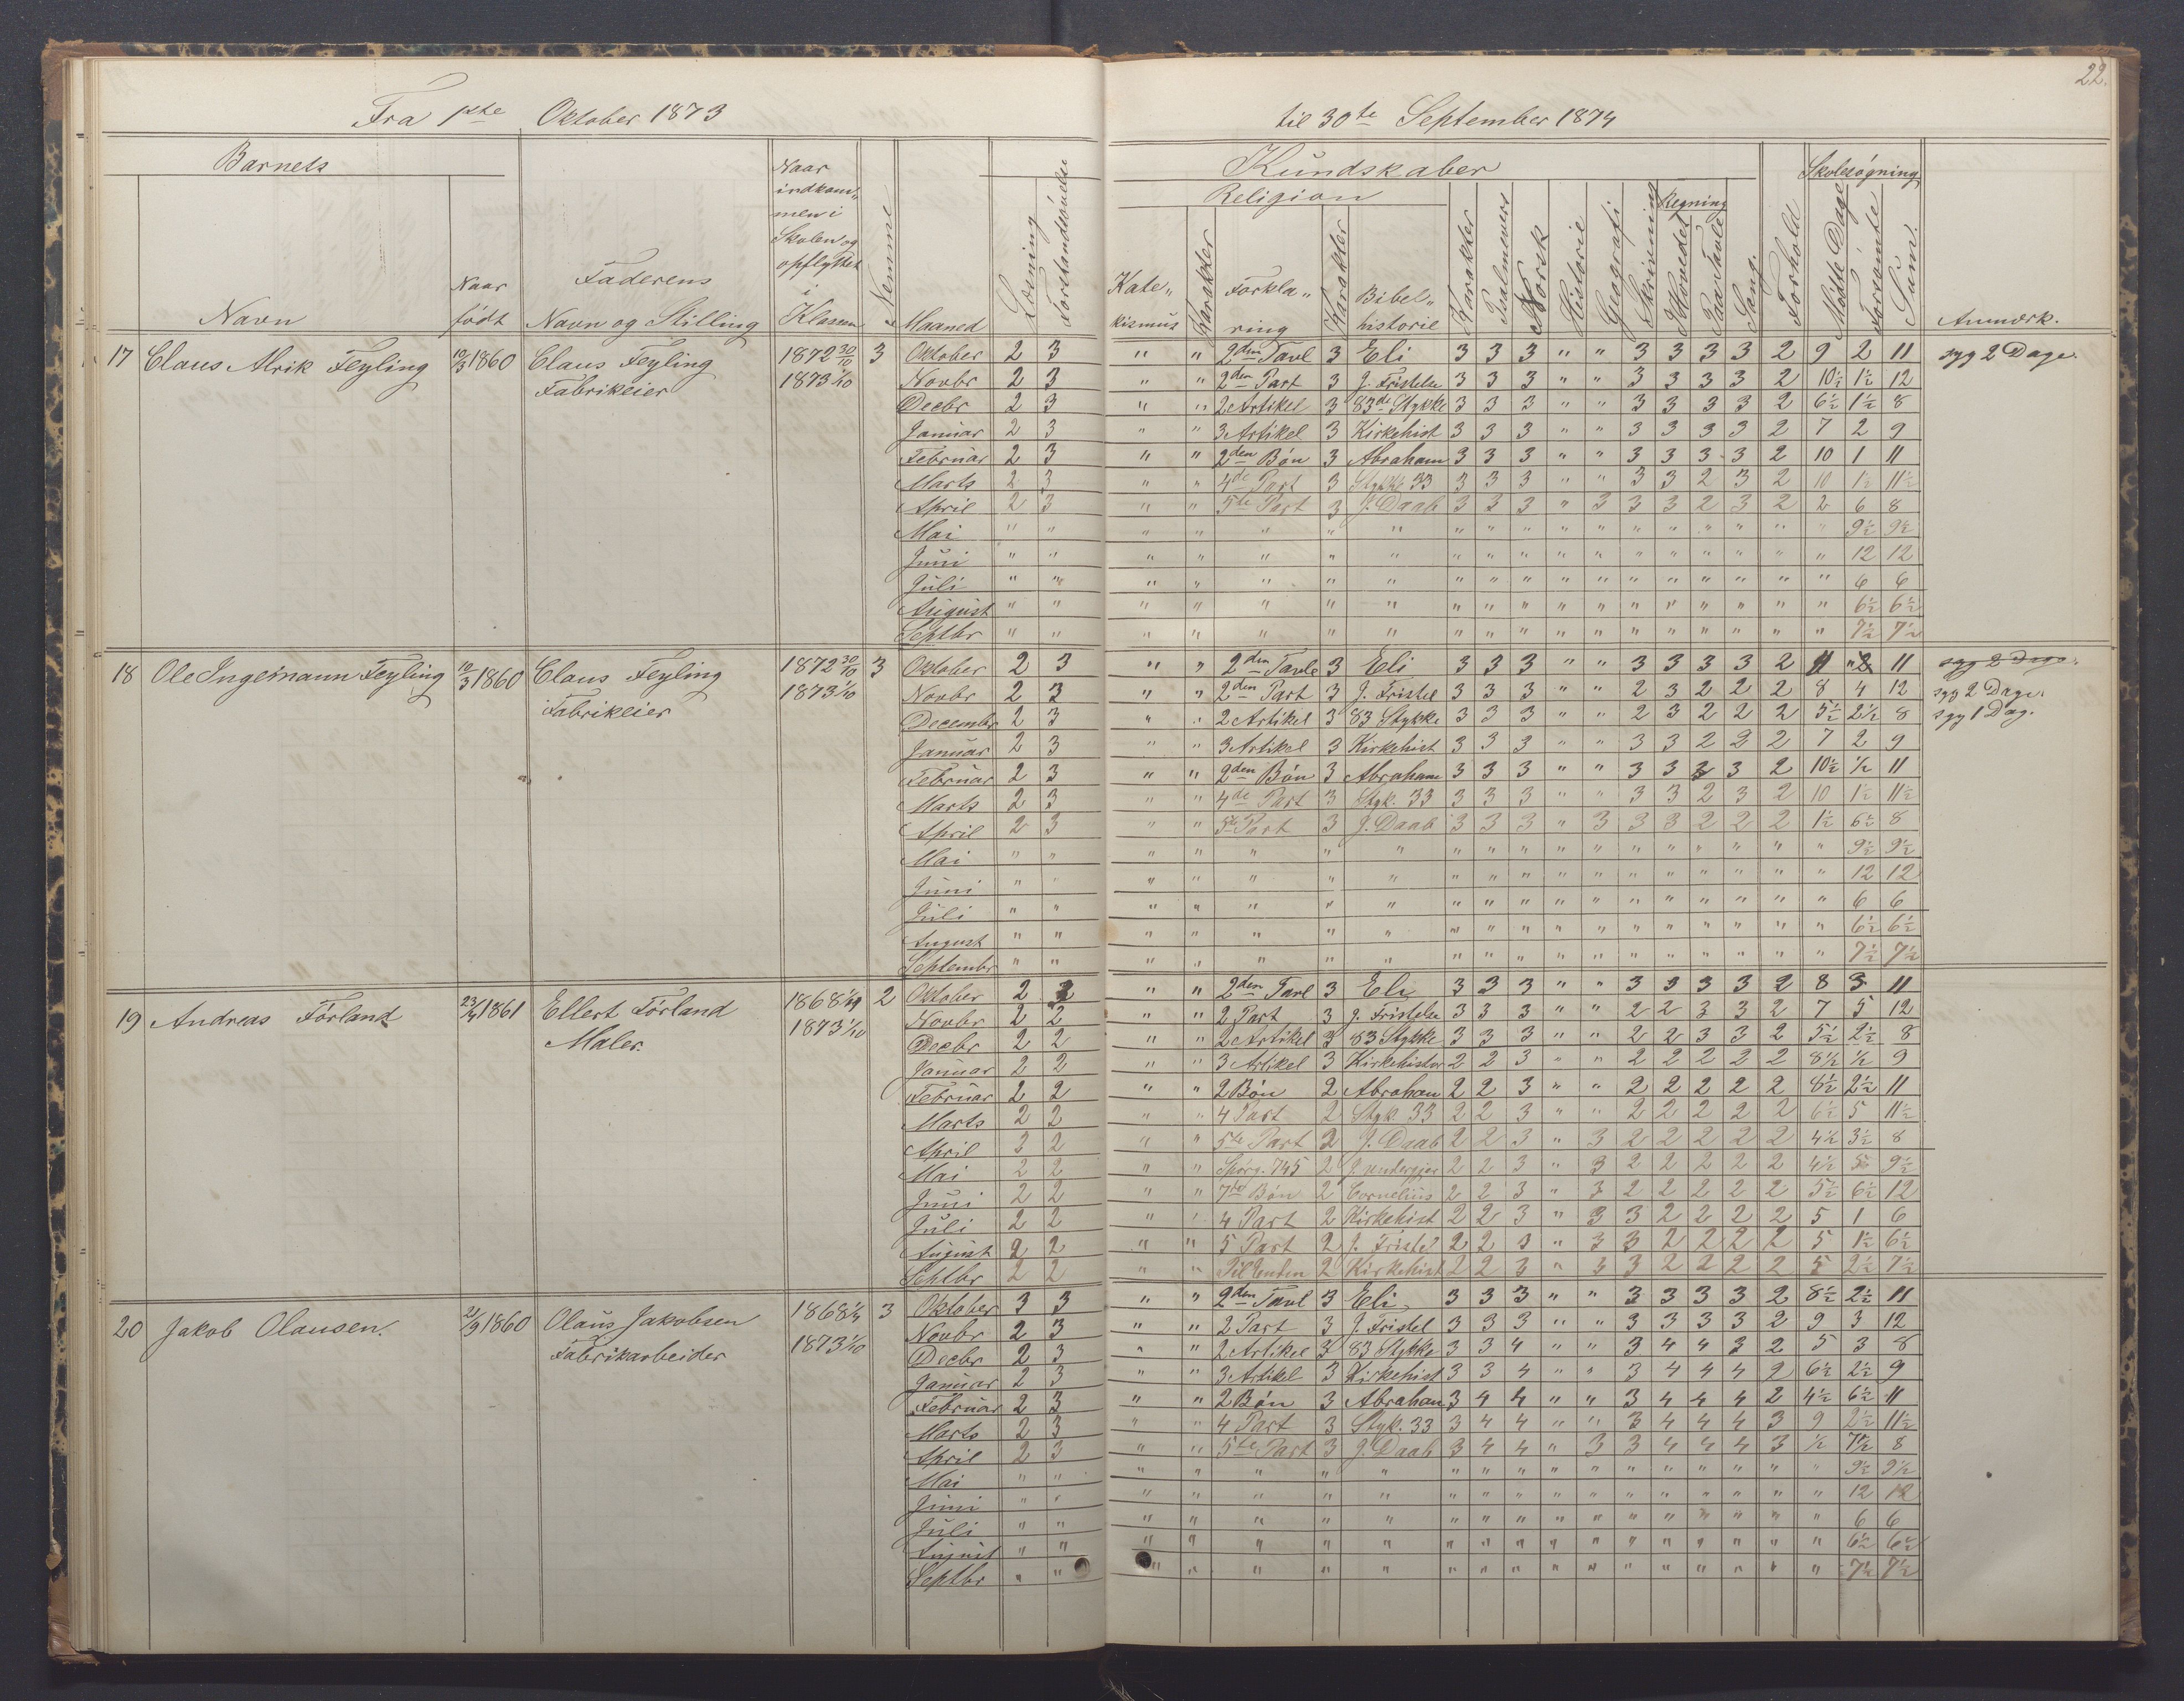 22.
Fra 1ste Oktober 1873 til 30te September 1874
Barnets
Navn
Naar født
Faderens Navn og Stilling
Naar indkom„ men i Skolen og opflyttet i Klassen
Nemme
Maaned
Læsning
Forstandsøvelse
Kundskaber
Religion
Kate„ kismus
Karakter
Forkla„ ring
Karakter
Bibel„ historie
Karakter
Psalmevers
Norsk
Historie
Geografi
Skrivning
Regning
I Hovedet
Paa Tavle
Sang.
Forhold
Skolesøgning
Mødte Dage
Forsømte
Sum.
Anmærk.
17 Claus Alrik Feyling 10/3 1860 Claus Feyling Fabrikeier 1872 30/10 1873 1/10 3
Oktober 2 3 " " 2den Tavl 3 Eli 3 3 3 " " 3 3 3 3 2 9 2 11 syg 2 Dage.
Novbr 2 3 " " 2den Part 3 J. Fristelse 3 3 3 " " 3 3 3 3 2 10½ 1½ 12
Decbr 2 3 " " 2 Artikel 3 83de Stykke 3 3 3 " " 3 3 3 3 2 6½ 1½ 8
Januar 2 3 " " 3 Artikel 3 Kirkehist 3 3 3 " " 3 3 3 3 2 7 2 9
Februar 2 3 " " 2den Bøn 3 Abraham 3 3 3 " " 3 3 3 3 2 10 1 11
Marts 2 3 " " 4de Part 3 Stykke 33 3 3 3 " " 3 3 2 3 2 10 1½ 11½
April 2 3 " " 5te Part 3 J. Daab 3 3 3 " 3 3 3 2 3 2 2 6 8
Mai " " " " " " " " " " " " " " " " " " 9½ 9½
Juni " " " " " " " " " " " " " " " " " " 12 12
Juli " " " " " " " " " " " " " " " " " " 6 6
August " " " " " " " " " " " " " " " " " " 6½ 6½
Septbr " " " " " " " " " " " " " " " " " " 7½ 7½
18 Ole Ingemann Feyling 10/3 1860 Claus Feyling Fabrikeier 1872 30/10 1873 1/10 3
Oktober 2 3 " " 2den Tavle 3 Eli 3 3 3 " " 3 3 3 3 2 11 " 11 syg 2 Dage.
Novbr 2 3 " " 2den Part 3 J. Fristel 3 3 3 " " 2 3 2 2 2 8 4 12 syg 2 Dage.
Decembr 2 3 " " 2 Artikel 3 83 Stykke 3 3 3 " " 2 3 2 2 2 5½ 2½ 8 syg 1 Dag.
Januar 2 3 " " 3 Artikel 3 Kirkehist 3 3 3 " " 3 3 2 2 2 7 2 9
Februar 2 3 " " 2den Bøn 3 Abraham 3 3 3 " " 3 3 3 3 2 10½ ½ 11
Marts 2 3 " " 4de Part 3 Styk. 33 3 3 3 " " 3 3 2 3 2 10 1½ 11½
April 2 3 " " 5te Part 3 J. Daab 3 3 3 " 3 3 3 2 2 2 1½ 6½ 8
Mai " " " " " " " " " " " " " " " " " " 9½ 9½
Juni " " " " " " " " " " " " " " " " " " 12 12
Juli " " " " " " " " " " " " " " " " " " 6 6
August " " " " " " " " " " " " " " " " " " 6½ 6½
Septembr " " " " " " " " " " " " " " " " " " 7½ 7½
19 Andreas Førland 23/4 1861 Ellert Førland Maler. 1868 1873 1/10 2
Oktober 2 2 " " 2den Tavl 3 Eli 3 3 3 " " 3 3 3 3 2 8 3 11
Novbr 2 2 " " 2 Part 3 J. Fristelse 3 3 3 " " 2 2 3 3 2 7 5 12
Decbr 2 2 " " 2 Artikel 3 83 Stykke 3 3 3 " " 2 2 3 3 2 5½ 2½ 8
Januar 2 2 " " 3 Artikel 3 Kirkehistor 2 2 3 " " 2 2 2 2 2 8½ ½ 9
Februar 2 2 " " 2 Bøn 2 Abraham 2 2 3 " " 2 2 2 2 2 8½ 2½ 11
Marts 2 2 " " 4 Part 2 Styk 33 2 2 3 " " 2 2 2 2 2 6½ 5 11½
April 3 2 " " 5te Part 2 J. Daab 2 2 3 " 3 2 2 2 2 2 4½ 3½ 8
Mai 2 2 " " Spørg. 745 2 J. undergjer 2 2 3 " 3 2 2 2 2 2 4½ 5 9½
Juni 2 2 " " 7de Bøn 2 Cornelius 2 2 3 " 3 2 2 2 2 2 5½ 6½ 12
Juli 2 2 " " 4 Part 2 Kirkehist 2 2 3 " 3 3 2 2 2 2 5 1 6
August 2 2 " " 5 Part 2 J. Fristel 2 2 3 " 3 3 2 2 2 2 5 1½ 6½
Septbr 2 2 " " Til Enden 2 Kirkehist 2 2 3 " 3 3 2 2 2 2 5 2½ 7½
20 Jakob Olausen. 2/9 1860 Olaus Jakobsen Fabrikarbeider 1868 1/4 1873 1/10 3
Oktober 3 3 " " 2den Tavl 3 Eli 3 3 3 " " 3 3 3 3 2 8½ 2½ 11
Novbr 2 3 " " 2 Part 3 J. Fristel 3 3 3 " " 3 3 3 3 2 9 3 12
Decbr 2 3 " " 2 Artikel 3 83 Stykke 3 3 4 " " 3 4 4 3 2 5 3 8
Januar 2 3 " " 3 Artikel 3 Kirkehist 3 3 4 " " 3 4 4 4 2 6½ 2½ 9
Februar 2 3 " " 2 Bøn 3 Abraham 3 4 4 " " 3 4 4 4 2 4½ 6½ 11
Marts 2 3 " " 4 Part 3 Styk. 33 3 4 4 " " 3 4 4 4 3 9 2½ 11½
April 2 3 " " 5te Part 3 J. Daab 3 4 4 " 3 3 4 4 4 3 ½ 7½ 8
Mai " " " " " " " " " " " " " " " " " " 9½ 9½
Juni " " " " " " " " " " " " " " " " " " 12 12
Juli " " " " " " " " " " " " " " " " " " 6 6
August " " " " " " " " " " " " " " " " " " 6½ 6½
Septbr " " " " " " " " " " " " " " " " " " 7½ 7½